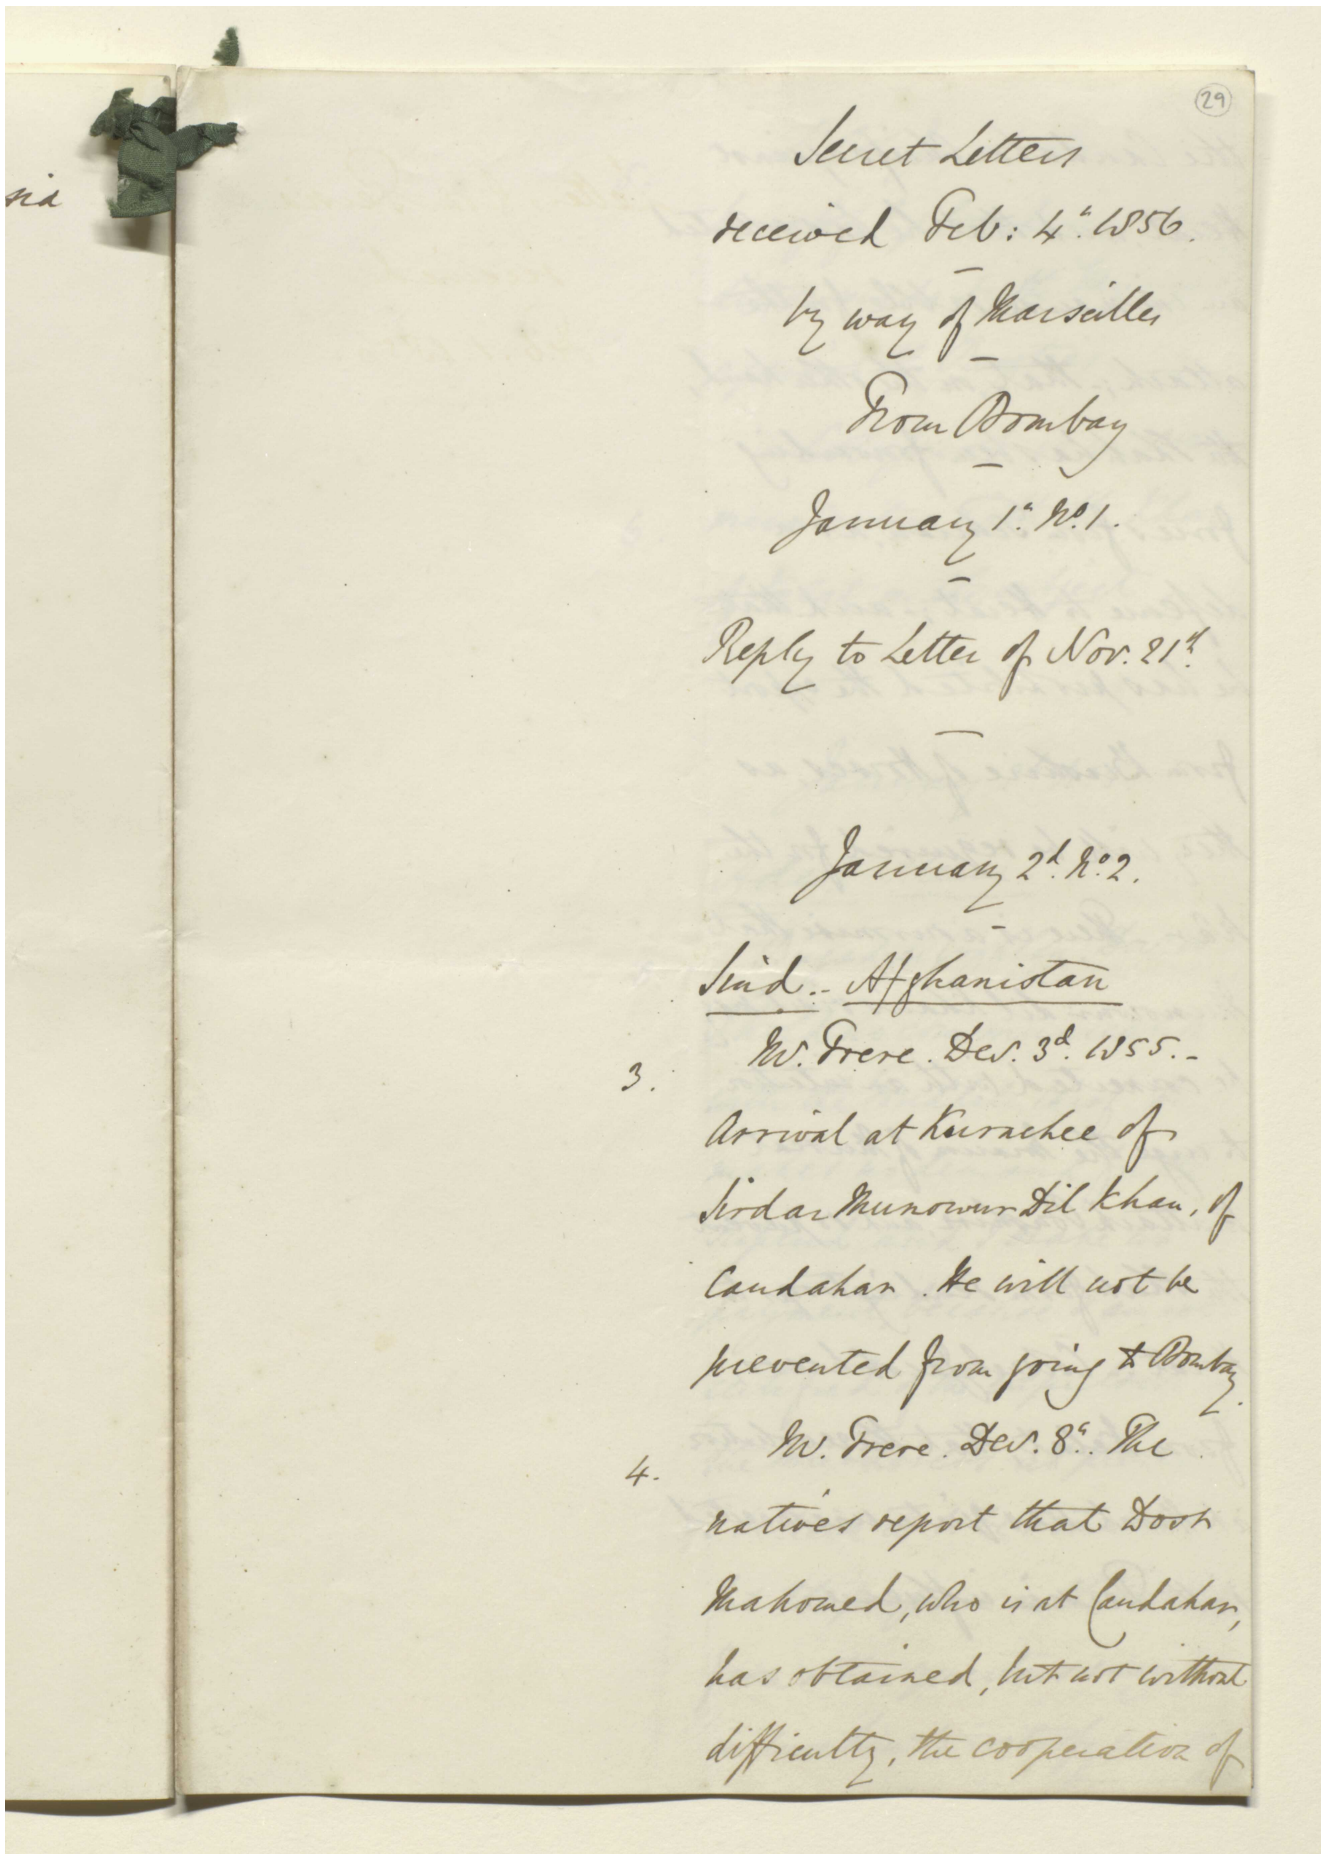 29
sia
Secret Letters
received Feb: 4th. 1856.
by way of Marseilles
From Bombay
January 1st. No. 1.
Reply to Letter of Nov. 21st.
January 2d. No. 2.
Sind. - Afghanistan
3. Mr. Frere. Dec. 3d. 1855. -
Arrival at Kurachee of
Sirdar Munowur Dil Khan, of
Candahar. He will not be
prevented from going to Bombay.
4. Mr. Frere. Dec. 8th. The
natives report that Dost
Mahomed, who is at Candahar,
has obtained, but not without
difficulty, the cooperation of